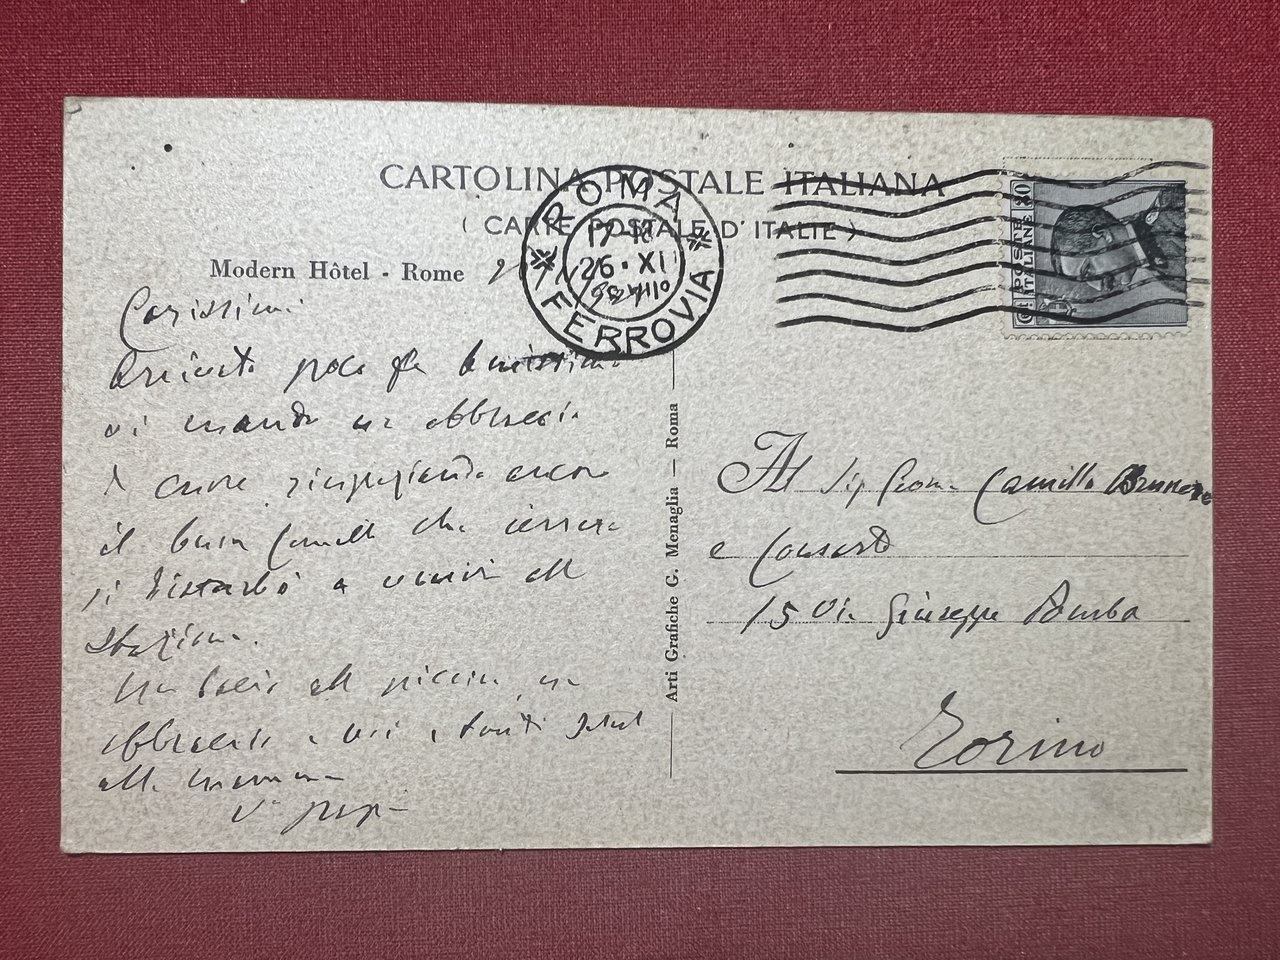 CARTOLINA POSTALE ITALIANA
( CARTE POSTALE D'ITALIE )
ROMA
FERROVIA
26·XI
POSTE ITALIANE
Modern Hôtel - Rome
Carissimi
Arrivato poco fa benissimo
vi mando un abbraccio
di cuore ringraziando ancora
il buon Camillo che iersera
si disturbò a venir alla
stazione.
Un bacio al piccino, un
abbraccio a voi e tanti saluti
alla mamma
Vo papà
Arti Grafiche G. Menaglia — Roma
Al Sig Geom. Camillo
e Consorte
15 Via Giuseppe Barba
Torino